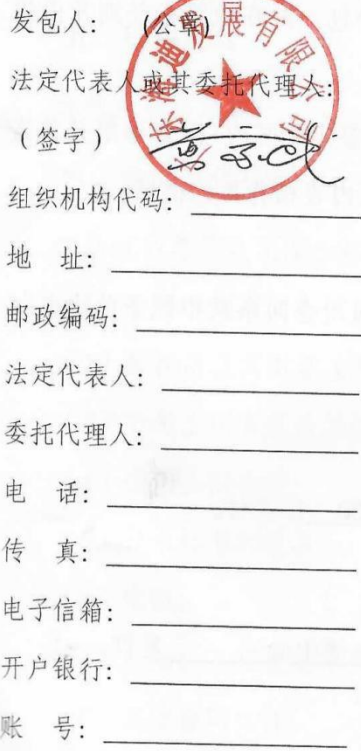 发包人： (公章)
发展有限公司
法定代表人或其委托代理人：
（签字）
组织机构代码：
地 址：
邮政编码：
法定代表人：
委托代理人：
电 话：
传 真：
电子信箱：
开户银行：
账 号：